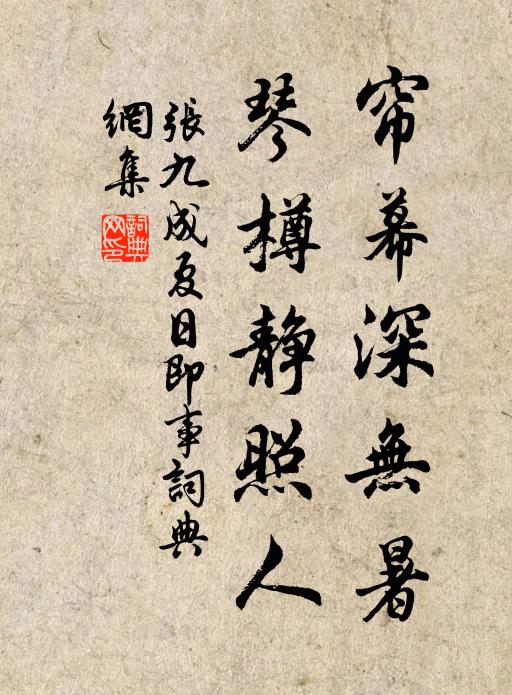 帘幕深無暑
琴樽静照人
張九成夏日即事詞典
網集
詞典网印